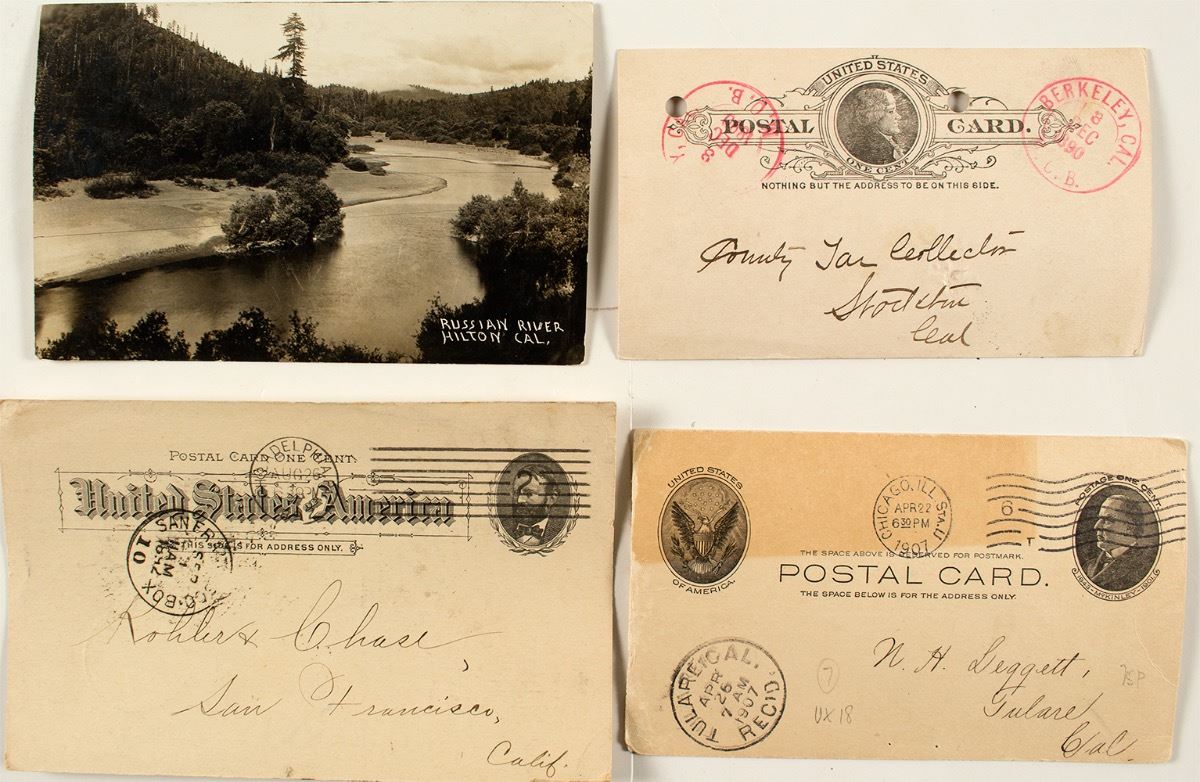 RUSSIAN RIVER
HILTON CAL.
UNITED STATES
POSTAL CARD.
ONE CENT
NOTHING BUT THE ADDRESS TO BE ON THIS SIDE.
DEC
8
BERKELEY, CAL.
8
DEC
1890
County Tax Collector
Stockton
Cal
POSTAL CARD ONE CENT.
United States of America
THIS SIDE IS FOR ADDRESS ONLY.
AUG 26
SAN FRANCISCO
AM
1892
BOX
10
Kohler & Chase,
San Francisco,
Calif.
UNITED STATES
OF AMERICA
CHICAGO, ILL.
APR 22
6 30 PM
1907
6
T
POSTAGE ONE CENT
1843-McKINLEY-1901
THE SPACE ABOVE IS RESERVED FOR POSTMARK.
POSTAL CARD.
THE SPACE BELOW IS FOR THE ADDRESS ONLY.
TULARE, CAL.
APR
26
7 AM
1907
REC'D.
N. H. Leggett,
Tulare
Cal
7
UX18